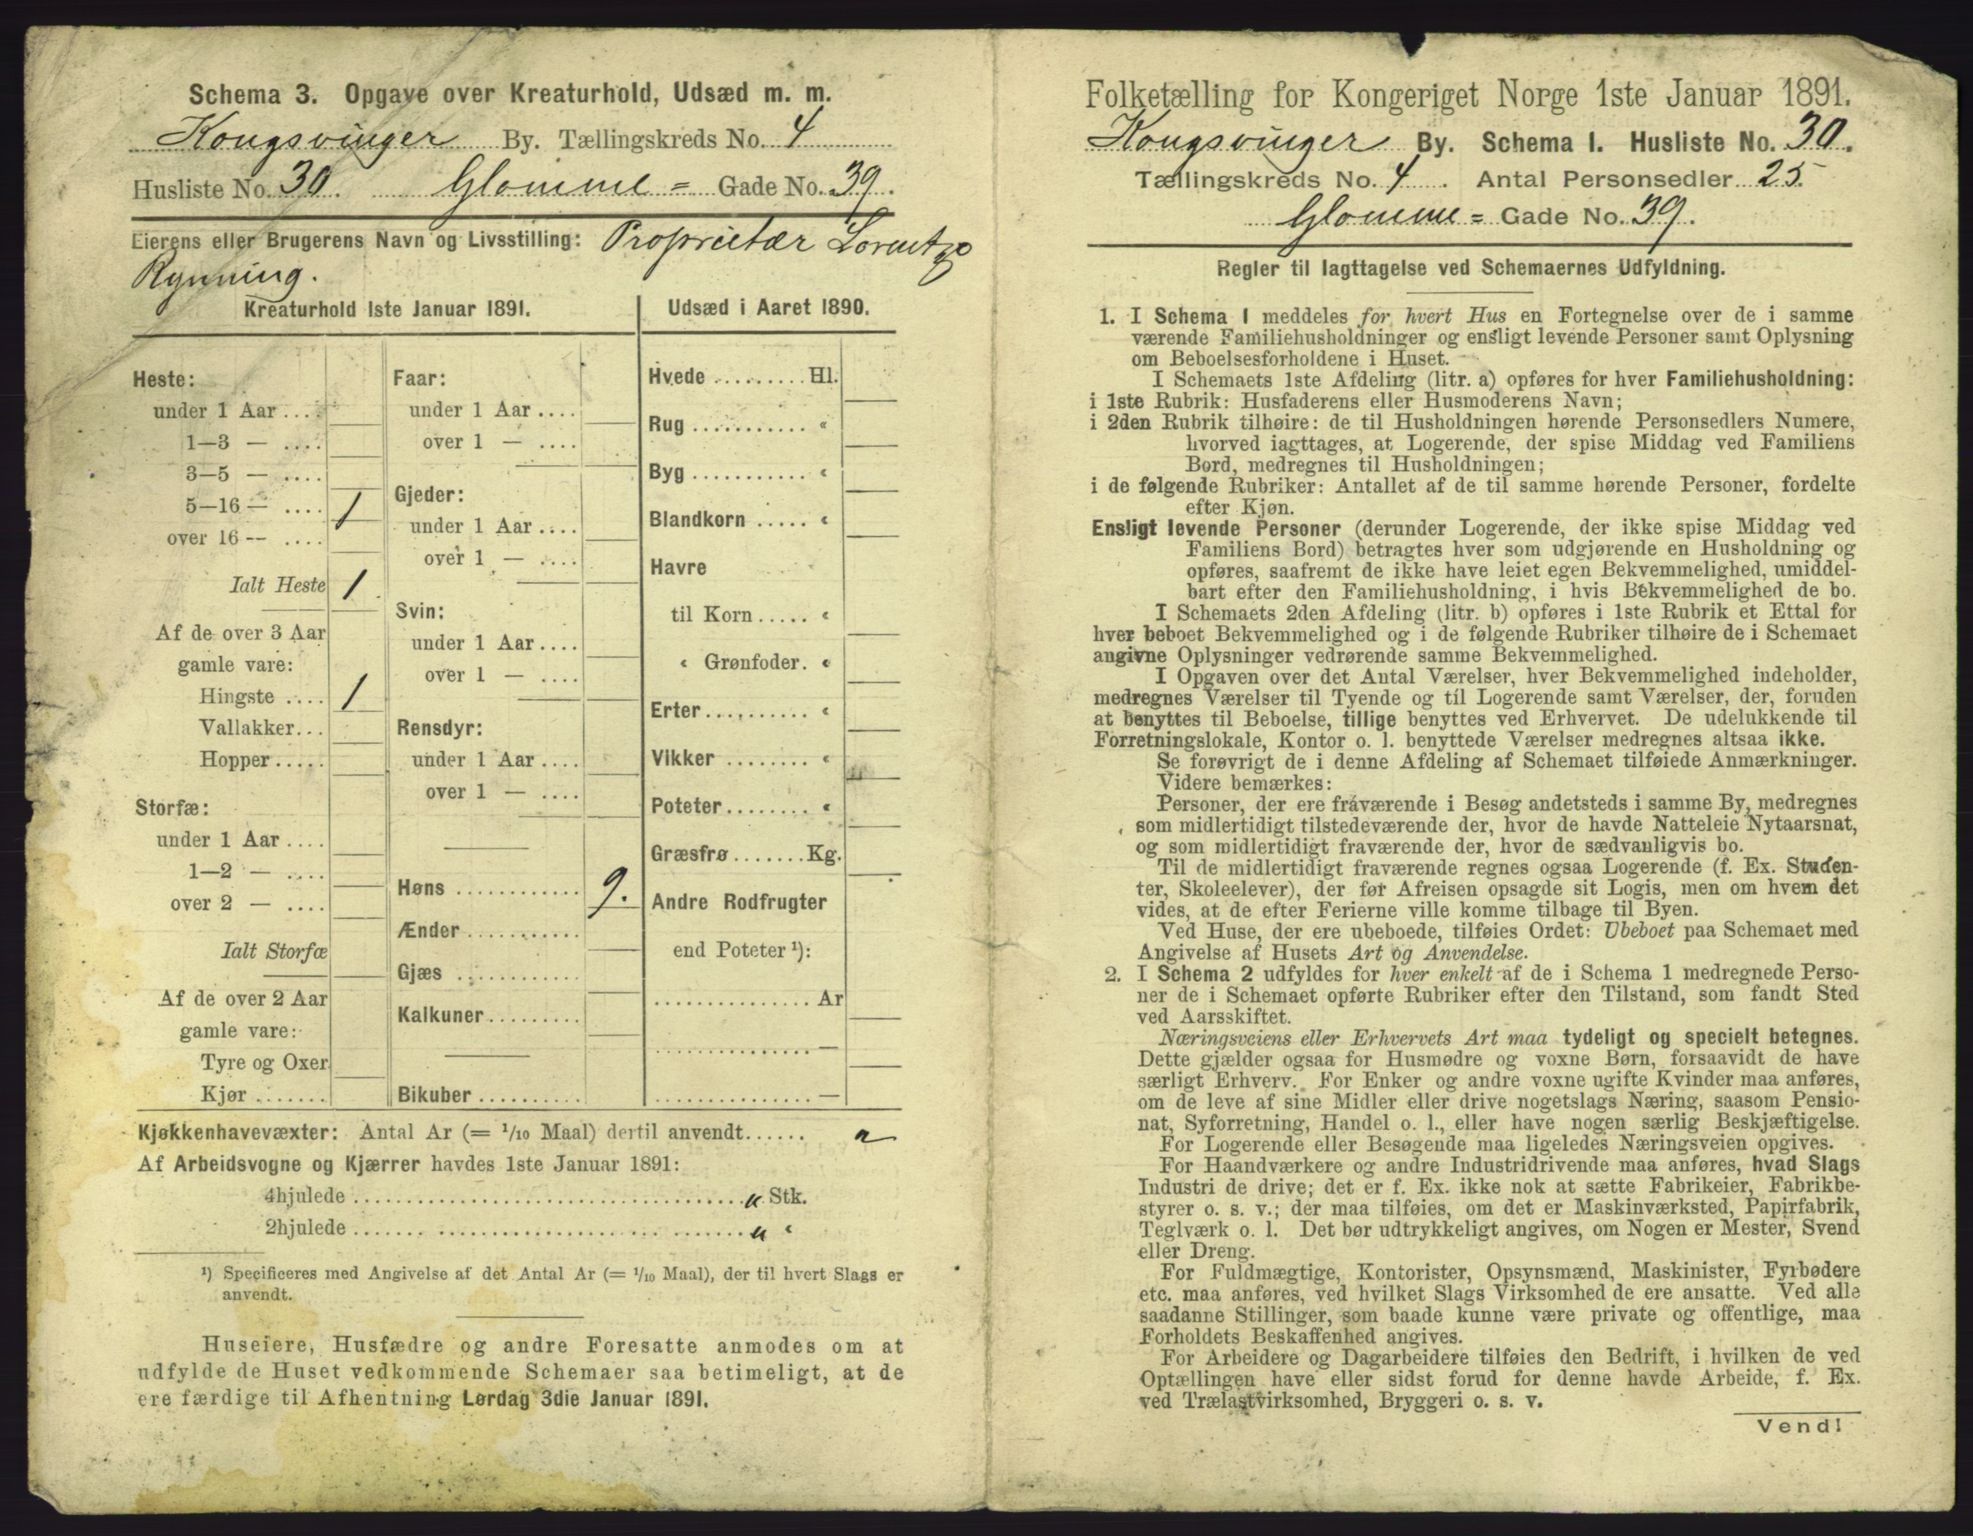 Schema 3. Opgave over Kreaturhold, Udsæd m. m.
Kongsvinger By. Tællingskreds No. 4
Husliste No. 30. Glomme= Gade No. 39.
Eierens eller Brugerens Navn og Livsstilling: Proprietær Lorentz
Rynning.
Kreaturhold 1ste Januar 1891.
Heste:
under 1 Aar ....
1—3 — ....
3—5 — ....
5—16 — .... 1
over 16 — ....
Ialt Heste 1.
Af de over 3 Aar
gamle vare:
Hingste .... 1
Vallakker...
Hopper.....
Storfæ:
under 1 Aar ....
1—2 — ....
over 2 — ....
Ialt Storfæ
Af de over 2 Aar
gamle vare:
Tyre og Oxer
Kjør .......
Faar:
under 1 Aar ....
over 1 — ....
Gjeder:
under 1 Aar ....
over 1 — ....
Svin:
under 1 Aar ....
over 1 — ....
Rensdyr:
under 1 Aar ....
over 1 — ....
Høns ............ 9.
Ænder ...........
Gjæs ............
Kalkuner.........
Bikuber ..........
Udsæd i Aaret 1890.
Hvede .........Hl.
Rug ........... «
Byg ........... «
Blandkorn ..... «
Havre
til Korn ..... «
« Grønfoder. «
Erter.......... «
Vikker ........ «
Poteter........ «
Græsfrø .......Kg.
Andre Rodfrugter
end Poteter ¹):
............... Ar
............... —
............... —
Kjøkkenhavevæxter: Antal Ar (= 1/10 Maal) dertil anvendt...... "
Af Arbeidsvogne og Kjærrer havdes 1ste Januar 1891:
4hjulede ....................................... " Stk.
2hjulede ....................................... " «
¹) Specificeres med Angivelse af det Antal Ar (= 1/10 Maal), der til hvert Slags er
anvendt.
Huseiere, Husfædre og andre Foresatte anmodes om at
udfylde de Huset vedkommende Schemaer saa betimeligt, at de
ere færdige til Afhentning Lørdag 3die Januar 1891.
Folketælling for Kongeriget Norge 1ste Januar 1891.
Kongsvinger By. Schema I. Husliste No. 30.
Tællingskreds No. 4. Antal Personsedler 25.
Glomme= Gade No. 39.
Regler til Iagttagelse ved Schemaernes Udfyldning.
1. I Schema 1 meddeles for hvert Hus en Fortegnelse over de i samme
værende Familiehusholdninger og ensligt levende Personer samt Oplysning
om Beboelsesforholdene i Huset.
I Schemaets 1ste Afdeling (litr. a) opføres for hver Familiehusholdning:
i 1ste Rubrik: Husfaderens eller Husmoderens Navn;
i 2den Rubrik tilhøire: de til Husholdningen hørende Personsedlers Numere,
hvorved iagttages, at Logerende, der spise Middag ved Familiens
Bord, medregnes til Husholdningen;
i de følgende Rubriker: Antallet af de til samme hørende Personer, fordelte
efter Kjøn.
Ensligt levende Personer (derunder Logerende, der ikke spise Middag ved
Familiens Bord) betragtes hver som udgjørende en Husholdning og
opføres, saafremt de ikke have leiet egen Bekvemmelighed, umiddel-
bart efter den Familiehusholdning, i hvis Bekvemmelighed de bo.
I Schemaets 2den Afdeling (litr. b) opføres i 1ste Rubrik et Ettal for
hver beboet Bekvemmelighed og i de følgende Rubriker tilhøire de i Schemaet
angivne Oplysninger vedrørende samme Bekvemmelighed.
I Opgaven over det Antal Værelser, hver Bekvemmelighed indeholder,
medregnes Værelser til Tyende og til Logerende samt Værelser, der, foruden
at benyttes til Beboelse, tillige benyttes ved Erhvervet. De udelukkende til
Forretningslokale, Kontor o. l. benyttede Værelser medregnes altsaa ikke.
Se forøvrigt de i denne Afdeling af Schemaet tilføiede Anmærkninger.
Videre bemærkes:
Personer, der ere fraværende i Besøg andetsteds i samme By, medregnes
som midlertidigt tilstedeværende der, hvor de havde Natteleie Nytaarsnat,
og som midlertidigt fraværende der, hvor de sædvanligvis bo.
Til de midlertidigt fraværende regnes ogsaa Logerende (f. Ex. Studen-
ter, Skoleelever), der før Afreisen opsagde sit Logis, men om hvem det
vides, at de efter Ferierne ville komme tilbage til Byen.
Ved Huse, der ere ubeboede, tilføies Ordet: Ubeboet paa Schemaet med
Angivelse af Husets Art og Anvendelse.
2. I Schema 2 udfyldes for hver enkelt af de i Schema 1 medregnede Perso-
ner de i Schemaet opførte Rubriker efter den Tilstand, som fandt Sted
ved Aarsskiftet.
Næringsveiens eller Erhvervets Art maa tydeligt og specielt betegnes.
Dette gjælder ogsaa for Husmødre og voxne Børn, forsaavidt de have
særligt Erhverv. For Enker og andre voxne ugifte Kvinder maa anføres,
om de leve af sine Midler eller drive nogetslags Næring, saasom Pensio-
nat, Syforretning, Handel o. l., eller have nogen særlig Beskjæftigelse.
For Logerende eller Besøgende maa ligeledes Næringsveien opgives.
For Haandværkere og andre Industridrivende maa anføres, hvad Slags
Industri de drive; det er f. Ex. ikke nok at sætte Fabrikeier, Fabrikbe-
styrer o. s. v.; der maa tilføies, om det er Maskinværksted, Papirfabrik,
Teglværk o. l. Det bør udtrykkeligt angives, om Nogen er Mester, Svend
eller Dreng.
For Fuldmægtige, Kontorister, Opsynsmænd, Maskinister, Fyrbødere
etc. maa anføres, ved hvilket Slags Virksomhed de ere ansatte. Ved alle
saadanne Stillinger, som baade kunne være private og offentlige, maa
Forholdets Beskaffenhed angives.
For Arbeidere og Dagarbeidere tilføies den Bedrift, i hvilken de ved
Optællingen have eller sidst forud for denne havde Arbeide, f. Ex.
ved Trælastvirksomhed, Bryggeri o. s. v.
Vend!